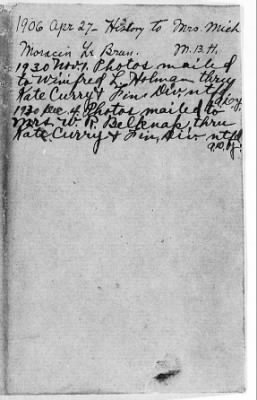 1906 Apr 27 - History to Mrs. Mich
Moracin Le Bran. M.B.H.
1930 Nov. 1. Photos mailed
to Winifred L. Holman thru
Kate Curry & Fin. Div.
1930 Dec. 4. Photos mailed to
Mrs. W. R. Belknap, thru
Kate Curry & Fin. Div.